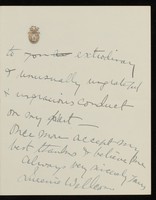 to your extraordinary
& unusually ungrateful
& ungracious conduct
on my part —
Once more accept my
best thanks & believe me
always very sincerely yours